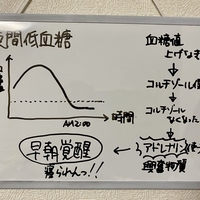 夜間低血糖
時間
AM2:00
早朝覚醒
寝られんっ!!
血糖値
上げなき
↓
コルチゾール
↓
コルチゾール
なくなった
↓
アドレナリン
興奮物質